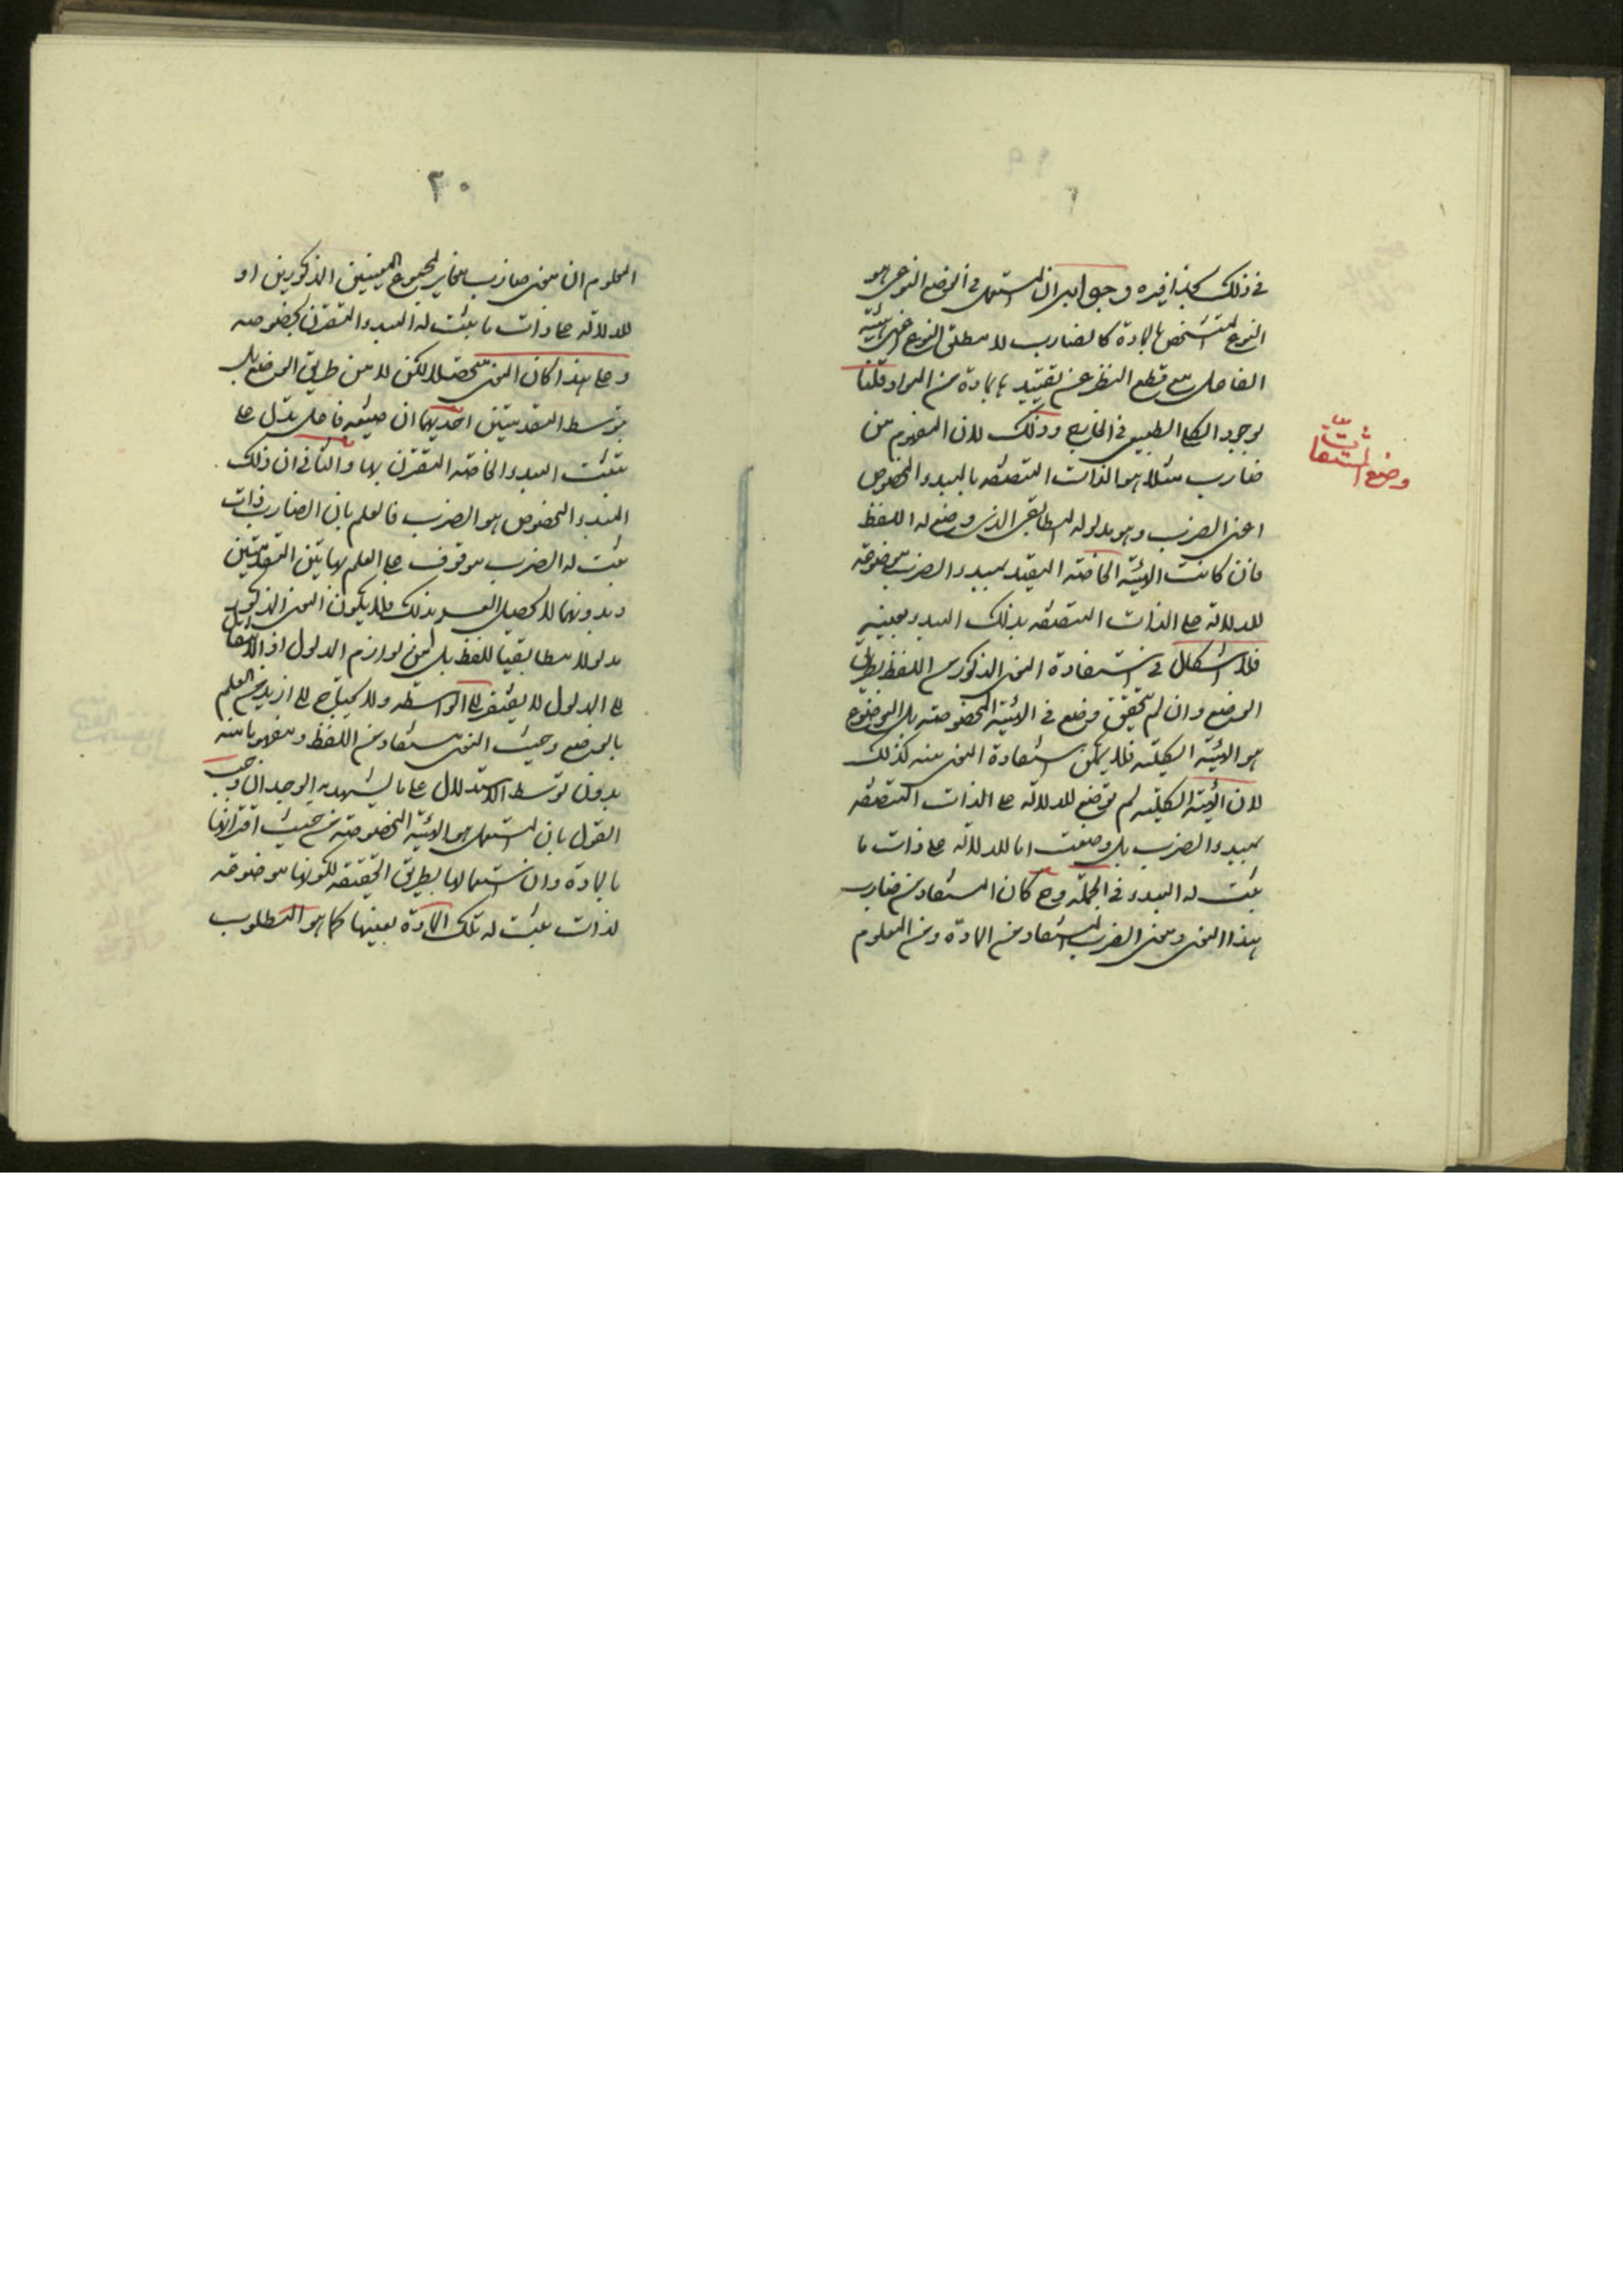 في ذلك بحذافيره وجوابه ان المستعمل في الوضع النوعي هو
النوع المتشخص بالمادة كالضارب لا مطلق النوع اعني هيئة
الفاعل مع قطع النظر عن تقييده بمادة من المواد وقلنا
بوجود الكلي الطبيعي في الخارج وذلك لان المفهوم من
وضع المشتقات
ضارب مثلا هو الذات المتصفه بالمبدء المخصوص
اعني الضرب وهو مدلوله المطابقي الذي وضع له اللفظ
فان كانت الهيئة الخاصة المقيد بمبدء الضرب موضوعة
للدلالة على الذات المتصفه بذلك المبدء بعينه
فلا اشكال في استفادة المعنى المذكور من اللفظ بطريق
الوضع وان لم يتحقق وضع في الهيئة المخصوصة بل الموضوع
هو الهيئة الكلية فلا يمكن استفادة المعنى منه كذلك
لان الهيئة الكلية لم توضع للدلالة على الذات المتصفه
بمبدء الضرب بل وضعت اما للدلالة على ذات ما
ثبت له المبدء في الجملة وح كان المستفاد من ضارب
هذا المعنى ومعنى الضرب المستفاد من المادة ومن المعلوم
٢٠
المعلوم ان معنى ضارب مغاير لمجموع المعنيين المذكورين او
للدلالة على ذات ما ثبت له المبدء المقترن بخصوصه
وعلى هذا كان المعنى متحصلا لكن لا من طريق الوضع بل
بتوسط المقدمتين احديهما ان صيغه فاعل تدل على
تثبت المبدء الخاصة المقترن بها والثاني ان ذلك
المبدء المخصوص هو الضرب فالعلم بان الضارب ذات
ثبت له الضرب موقوف على العلم بهاتين المقدمتين
وبدونهما لا يحصل العلم بذلك فلا يكون المعنى المذكور
مدلولا مطابقيا للفظ بل من لوازم المدلول اذ الانتقال
الى المدلول لا يفتقر الى الواسطه ولا يحتاج الى ازيد من العلم
بالوضع وحيث المعنى مستفاد من اللفظ ومفهوما منه
بدون توسط الاستدلال على ما يشهد به الوجدان وجب
القول بان المستعمل هو الهيئة المخصوصة من حيث اقترانها
بالمادة وان استعمالها بطريق الحقيقة لكونها موضوعة
لذات ثبت له تلك المادة بعينها كما هو المطلوب